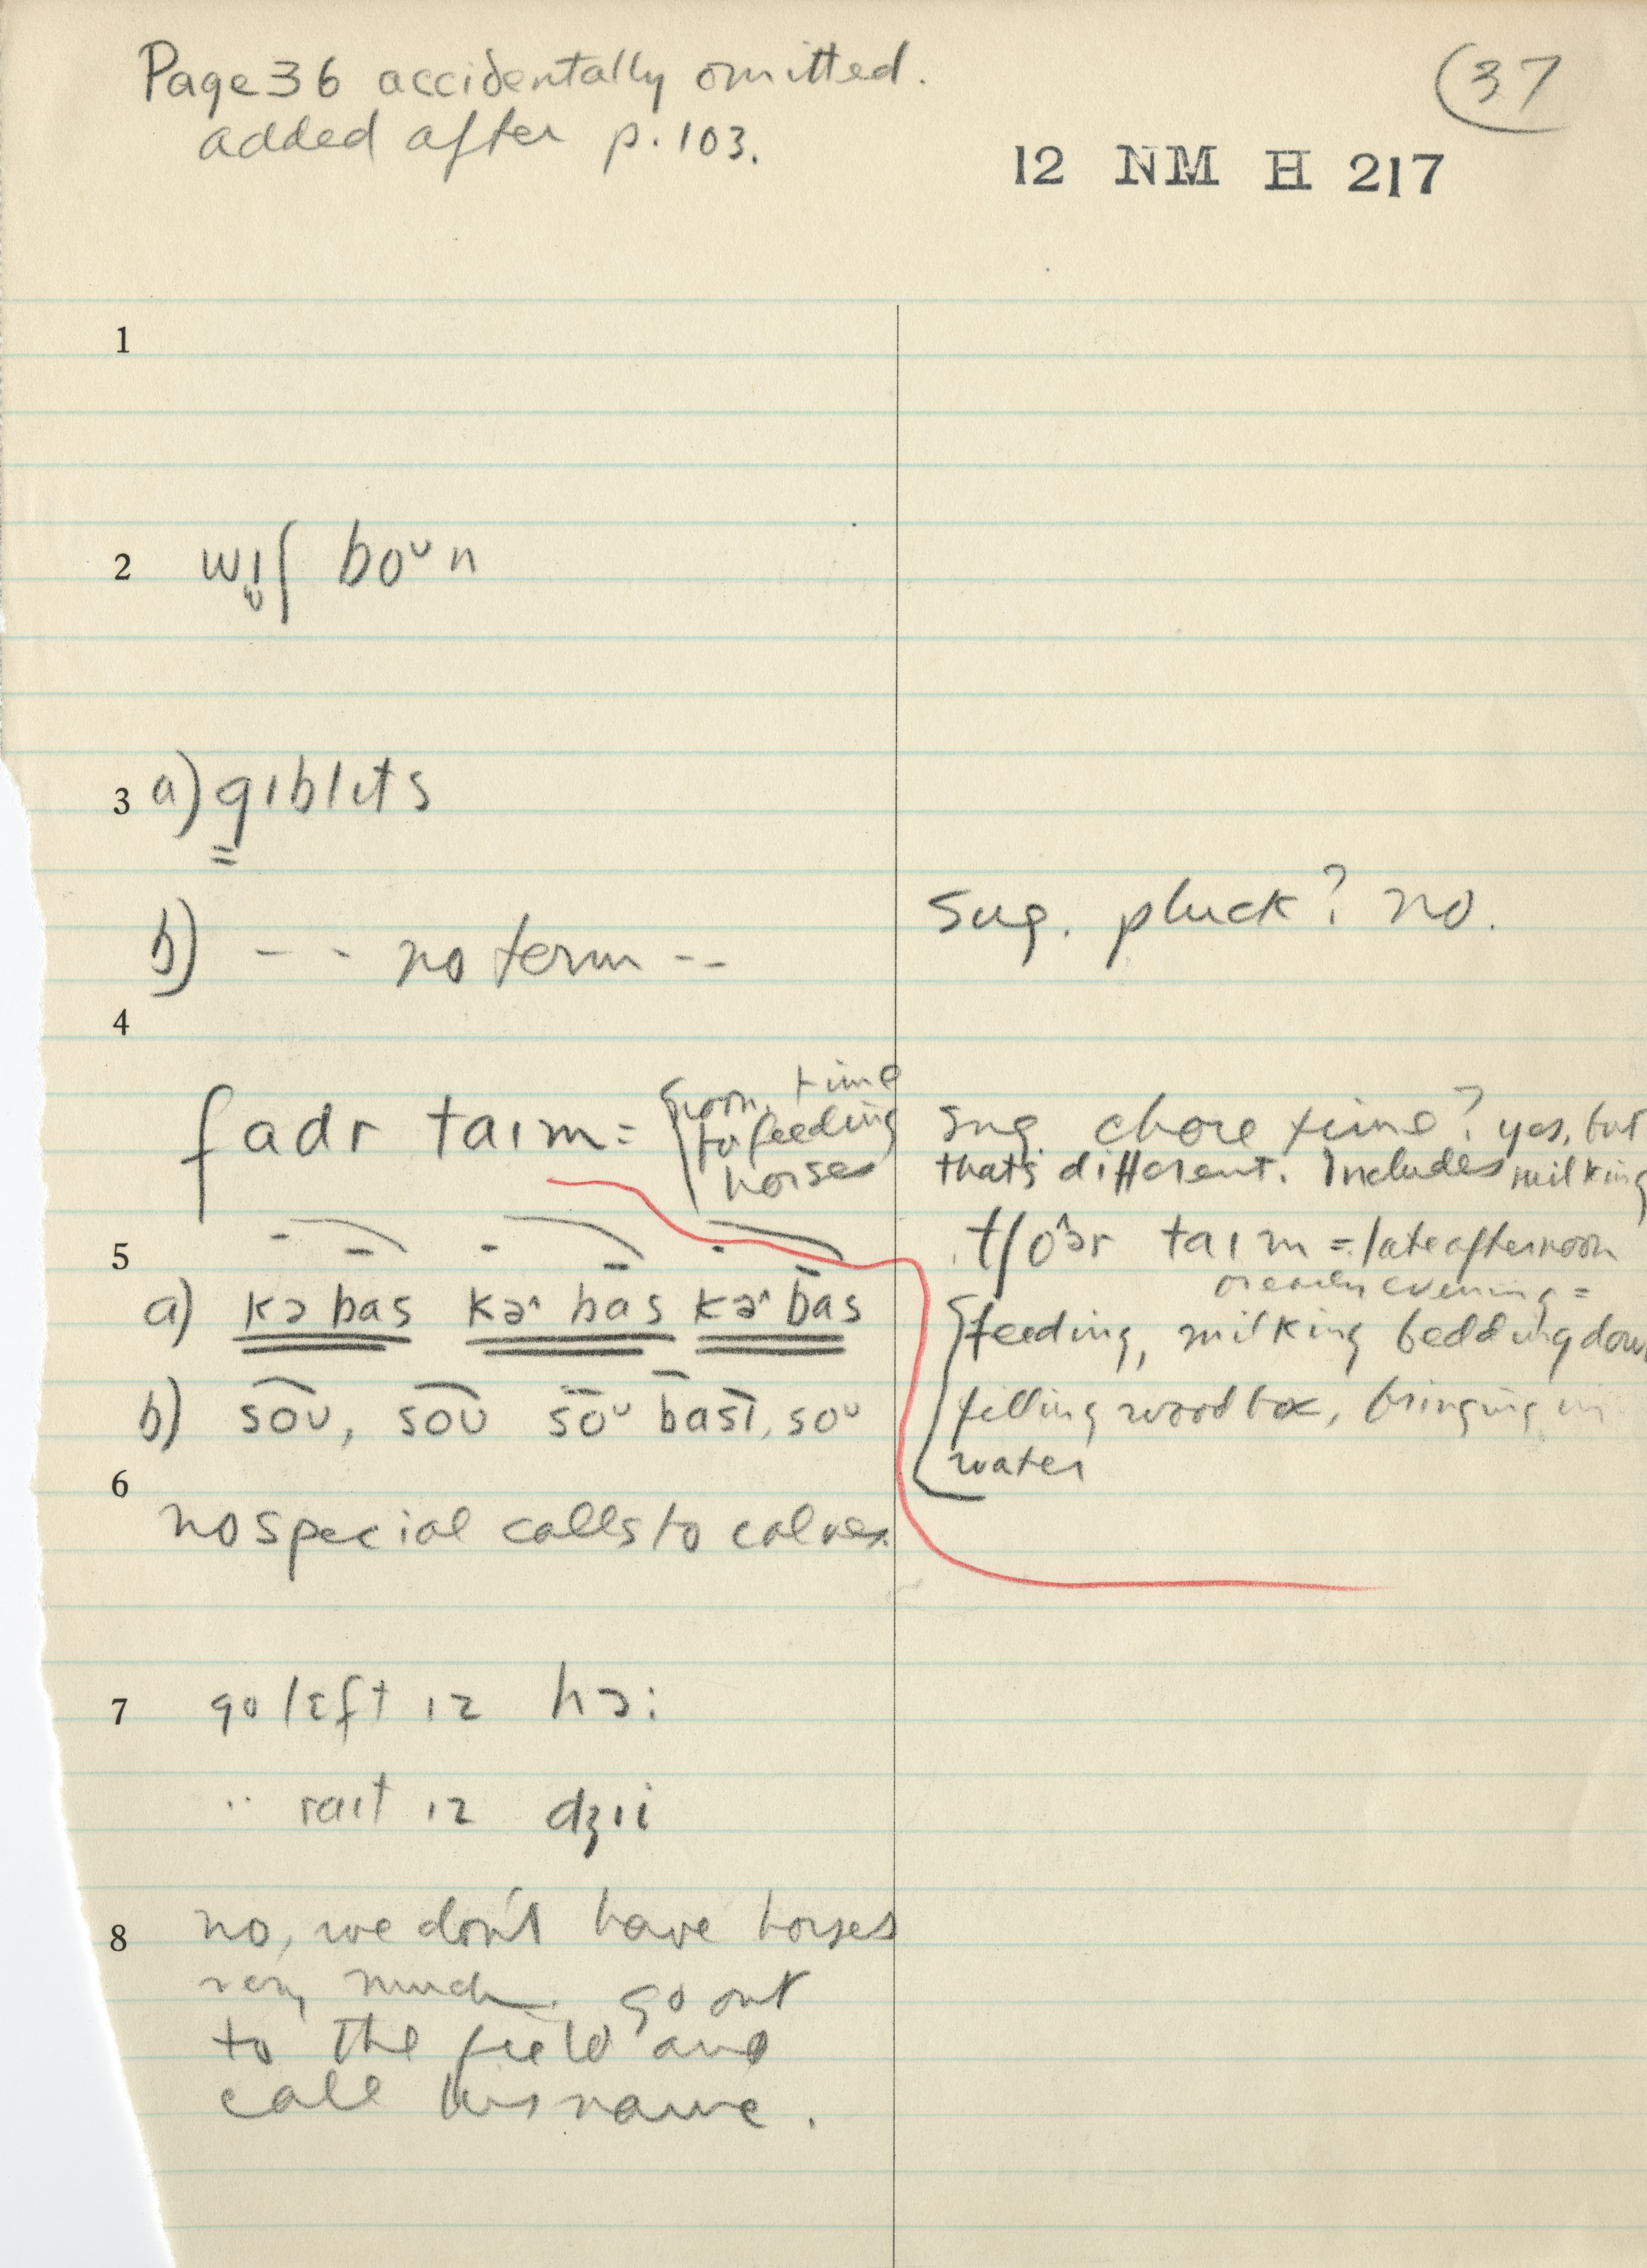 Page 36 accidentally omitted.
added after p. 103.
37
12 NM H 217
1
2 wɪʃ boᴜn
3 a) gɪblɪts
b) -- no term --
sug. pluck? no.
4
fadr taɪm = noon, time
for feeding
horses
sug. chore time? yes, but
that's different. Includes milking
tʃo^ər taɪm = late afternoon
or early evening =
feeding, milking bedding down
filling wood box, bringing in
water
5
a) kə bas kə^ bas kə^ bas
b) soᴜ, soᴜ soᴜ basɪ, soᴜ
6
no special calls to calves.
7 go lɛft ɪz hɔ:
" raɪt ɪz dʒɪi
8 no, we don't have horses
very much. go out
to the field and
call his name.